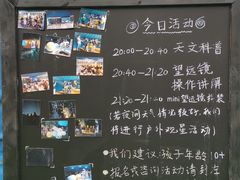 今日活动
20:00-20:40 天文科普
20:40-21:20 望远镜
操作讲解
21:20-21:50 mini望远镜组装
(若夜间天气情况较好,我们
将进行户外观星活动)
●我们建议:孩子年龄10+
●报名或咨询活动请到左